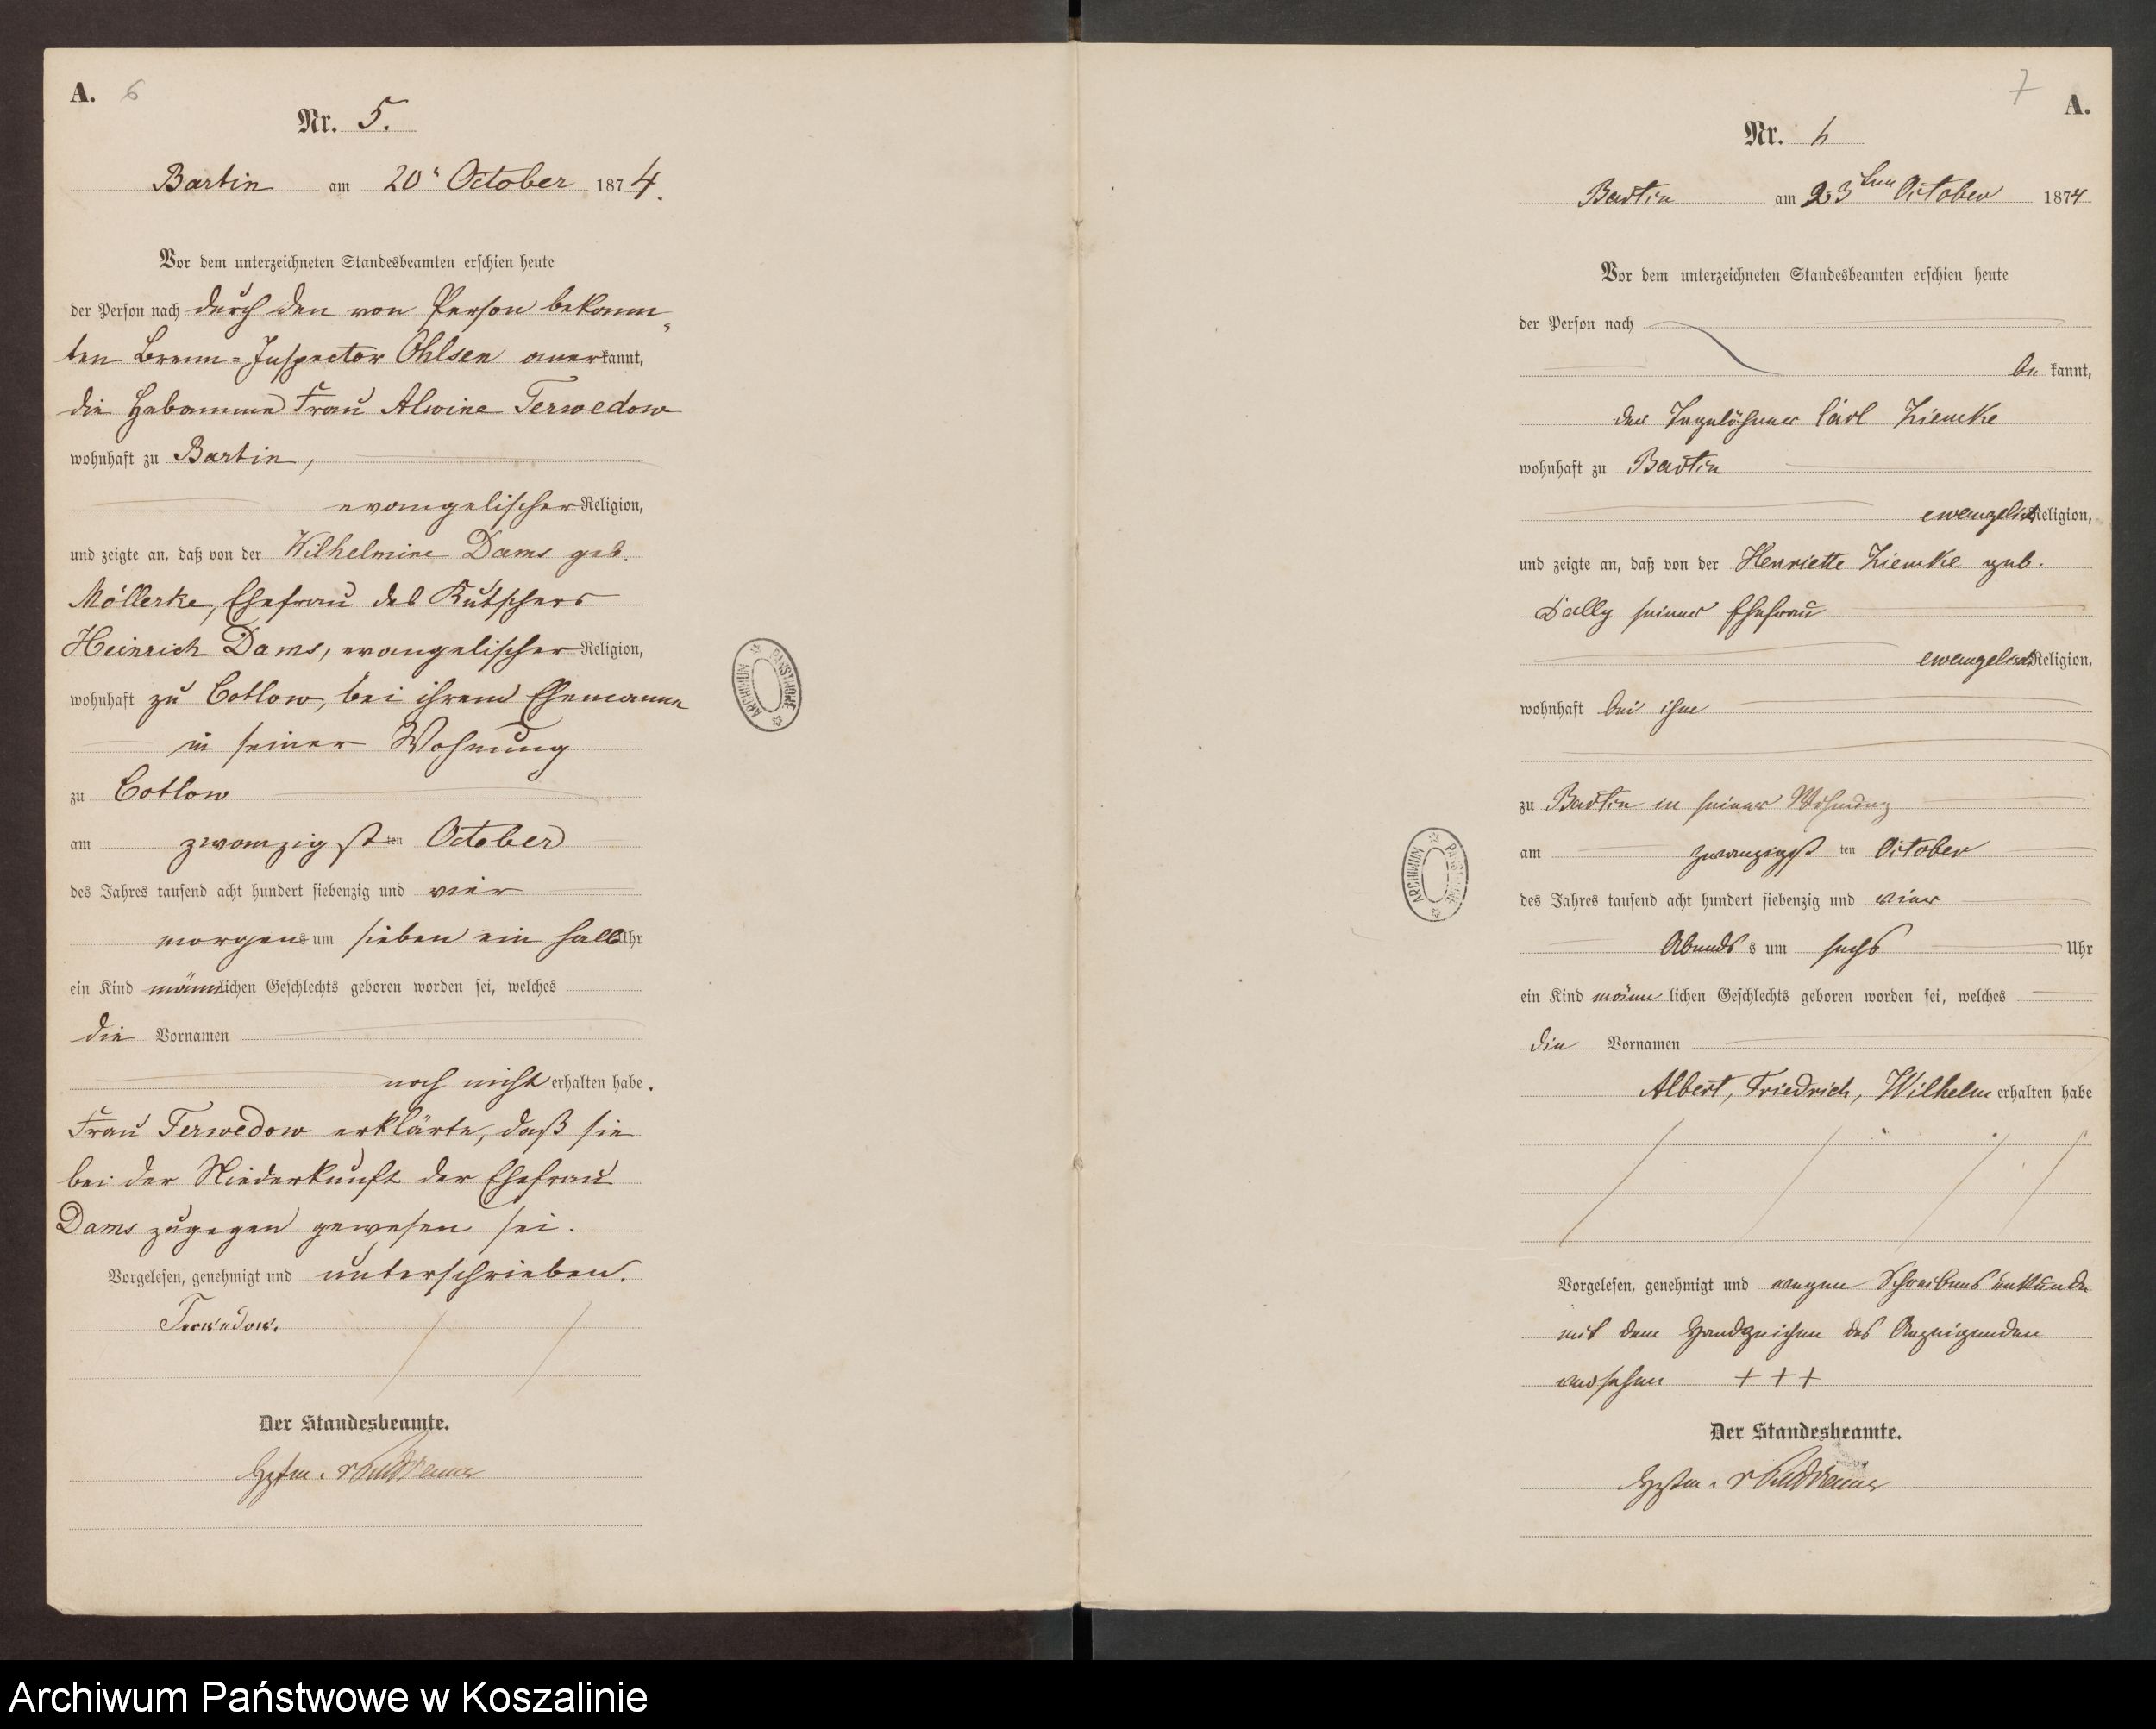 A. 6
Nr. 5.
Bartin am 20t October 1874.
Vor dem unterzeichneten Standesbeamten erschien heute
der Person nach durch den von Person bekann„
ten Brenn-Inspector Ohlsen anerkannt,
die Hebamme Frau Alwine Terwedow
wohnhaft zu Bartin,
evangelischer Religion,
und zeigte an, daß von der Wilhelmine Dams geb.
Möllerke, Ehefrau des Kutschers
Heinrich Dams, evangelischer Religion,
wohnhaft zu Cotlow, bei ihrem Ehemanne
in seiner Wohnung
zu Cotlow
am zwanzigsten October
des Jahres tausend acht hundert siebenzig und vier
morgens um sieben ein halb Uhr
ein Kind männlichen Geschlechts geboren worden sei, welches
die Vornamen
noch nicht erhalten habe.
Frau Terwedow erklärte, daß sie
bei der Niederkunft der Ehefrau
Dams zugegen gewesen sei.
Vorgelesen, genehmigt und unterschrieben.
Terwedow.
Der Standesbeamte.
ARCHIWUM PAŃSTWOWE
7 A.
Nr. 6
Bartin am 23ten October 1874
Vor dem unterzeichneten Standesbeamten erschien heute
der Person nach
be kannt,
der Tagelöhner Carl Ziemke
wohnhaft zu Bartin
ewangelisch Religion,
und zeigte an, daß von der Henriette Ziemke geb.
Dally seiner Ehefrau
ewangelisch Religion,
wohnhaft bei ihm
zu Bartin in seiner Wohnung
am zwanzigst ten October
des Jahres tausend acht hundert siebenzig und vier
Abends s um sechs Uhr
ein Kind männ lichen Geschlechts geboren worden sei, welches
die Vornamen
Albert, Friedrich, Wilhelm erhalten habe
Vorgelesen, genehmigt und wegen Schreibensunkunde
mit dem Handzeichen des Anzeigenden
versehen + + +
Der Standesbeamte.
ARCHIWUM PAŃSTWOWE
Archiwum Państwowe w Koszalinie